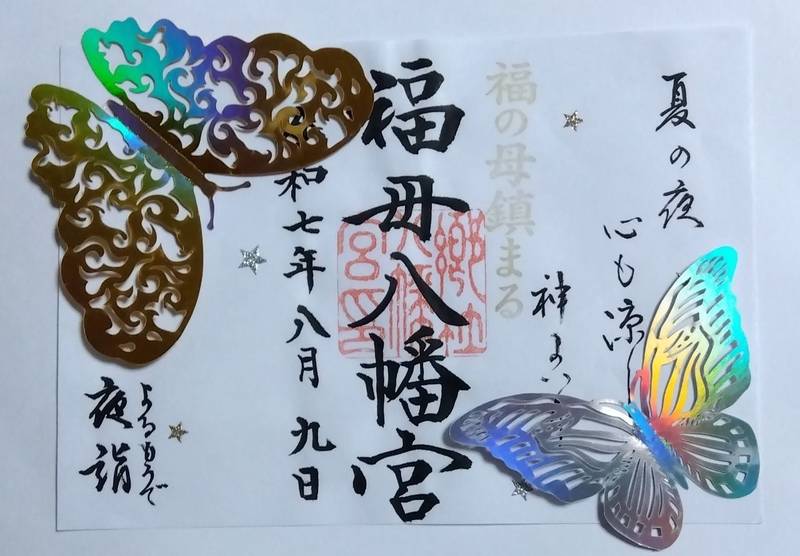 夏の夜
心も涼し
神ま
福の母鎮まる
福母八幡宮
和七年八月九日
よるもうで
夜詣